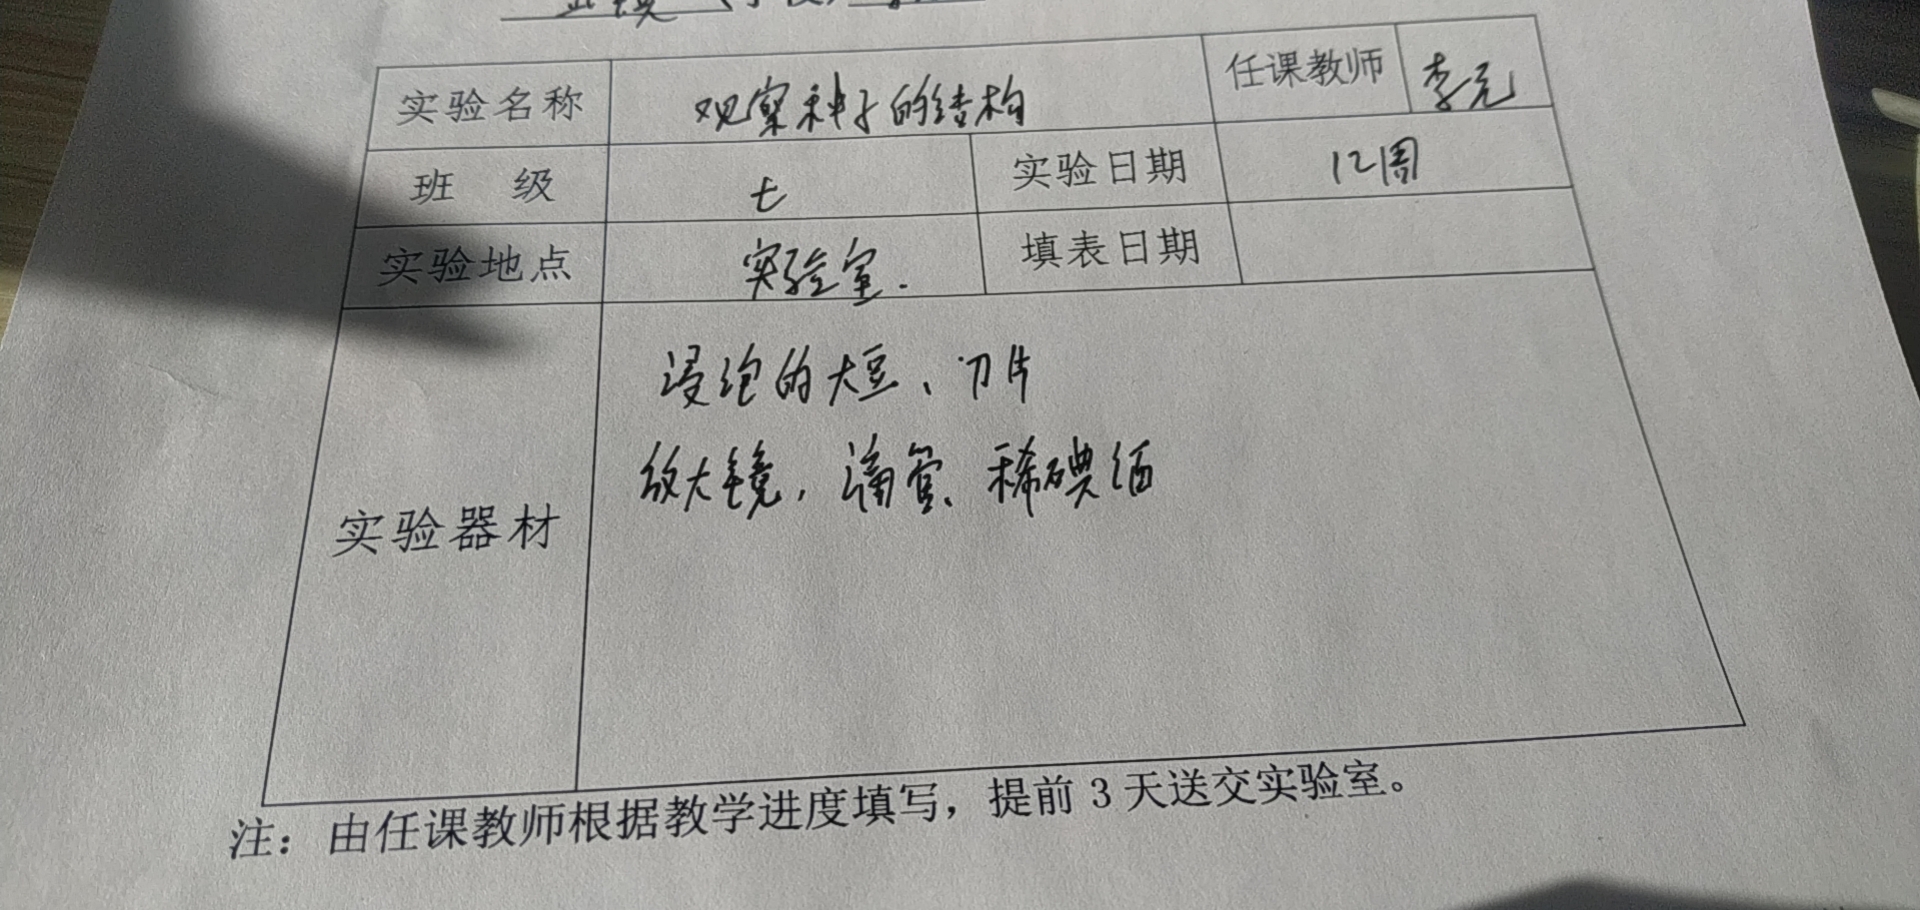 实验名称 观察种子的结构 任课教师 李元
班 级 七 实验日期 12周
实验地点 实验室. 填表日期
浸泡的大豆、刀片
放大镜, 滴管、稀碘酒
实验器材
注：由任课教师根据教学进度填写，提前3天送交实验室。